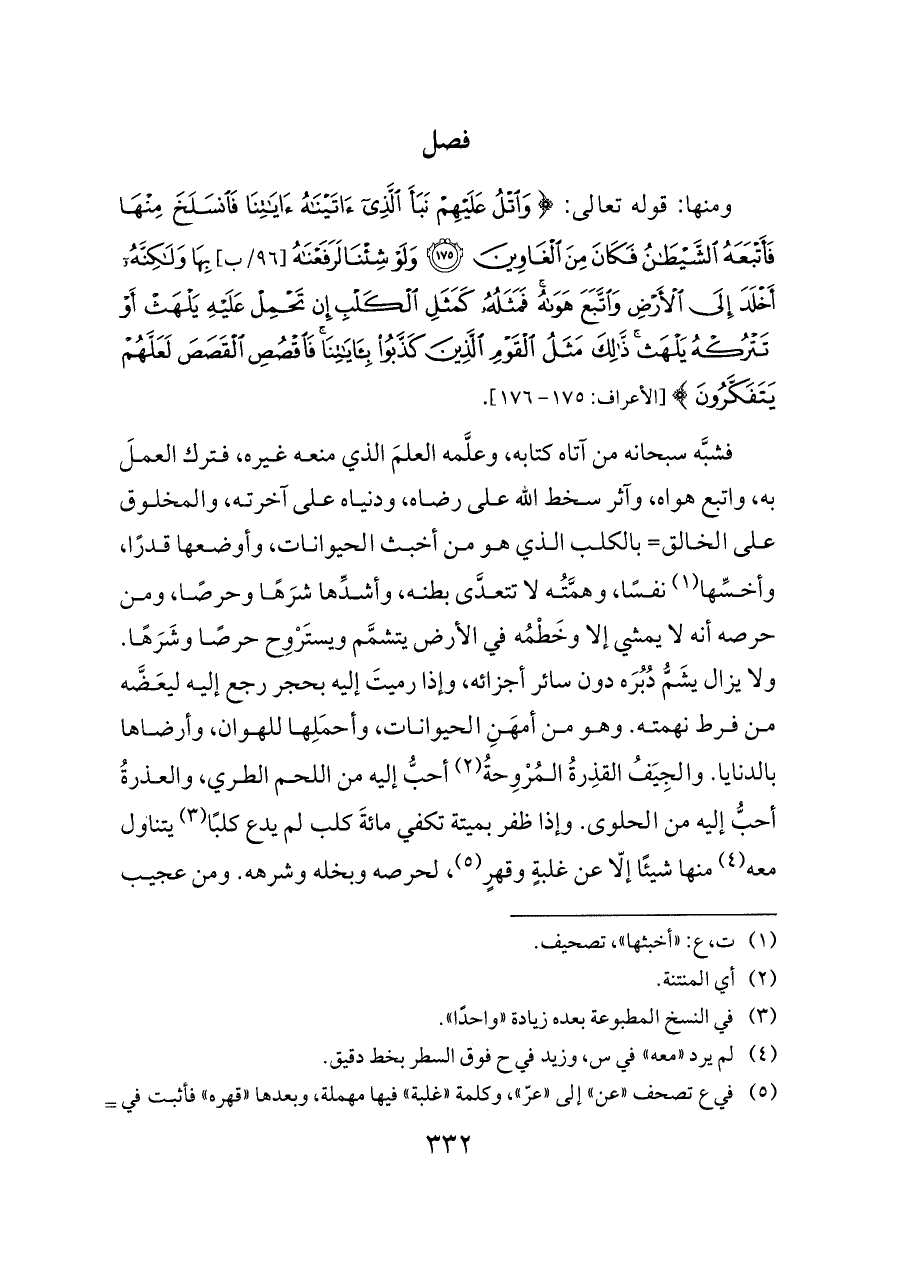 فصل
ومنها: قوله تعالى: ﴿وَٱتْلُ عَلَيْهِمْ نَبَأَ ٱلَّذِىٓ ءَاتَيْنَٰهُ ءَايَٰتِنَا فَٱنسَلَخَ مِنْهَا
فَأَتْبَعَهُ ٱلشَّيْطَٰنُ فَكَانَ مِنَ ٱلْغَاوِينَ ١٧٥ وَلَوْ شِئْنَا لَرَفَعْنَٰهُ [٩٦/ ب] بِهَا وَلَٰكِنَّهُۥٓ
أَخْلَدَ إِلَى ٱلْأَرْضِ وَٱتَّبَعَ هَوَىٰهُ ۚ فَمَثَلُهُۥ كَمَثَلِ ٱلْكَلْبِ إِن تَحْمِلْ عَلَيْهِ يَلْهَثْ أَوْ
تَتْرُكْهُ يَلْهَث ۚ ذَّٰلِكَ مَثَلُ ٱلْقَوْمِ ٱلَّذِينَ كَذَّبُوا۟ بِـَٔايَٰتِنَا ۚ فَٱقْصُصِ ٱلْقَصَصَ لَعَلَّهُمْ
يَتَفَكَّرُونَ﴾ [الأعراف: ١٧٥- ١٧٦].
فشبَّه سبحانه من آتاه كتابه، وعلَّمه العلمَ الذي منعه غيره، فترك العملَ
به، واتبع هواه، وآثر سخط الله على رضاه، ودنياه على آخرته، والمخلوق
على الخالق= بالكلب الذي هو من أخبث الحيوانات، وأوضعها قدرًا،
وأخسِّها(١) نفسًا، وهمَّتُه لا تتعدَّى بطنه، وأشدِّها شرَهًا وحرصًا، ومن
حرصه أنه لا يمشي إلا وخَطْمُه في الأرض يتشمَّم ويستَرْوِح حرصًا وشَرَهًا.
ولا يزال يشَمُّ دُبُرَه دون سائر أجزائه، وإذا رميتَ إليه بحجر رجع إليه ليعَضَّه
من فرط نهمته. وهو من أمهَنِ الحيوانات، وأحمَلِها للهوان، وأرضاها
بالدنايا. والجِيَفُ القذِرةُ المُرْوِحةُ(٢) أحبُّ إليه من اللحم الطري، والعذرةُ
أحبُّ إليه من الحلوى. وإذا ظفر بميتة تكفي مائةَ كلب لم يدع كلبًا(٣) يتناول
معه(٤) منها شيئًا إلّا عن غلبةٍ وقهرٍ(٥)، لحرصه وبخله وشرهه. ومن عجيب
(١) ت،ع: «أخبثها»، تصحيف.
(٢) أي المنتنة.
(٣) في النسخ المطبوعة بعده زيادة «واحدًا».
(٤) لم يرد «معه» في س، وزيد في ح فوق السطر بخط دقيق.
(٥) في ع تصحف «عن» إلى «عرّ»، وكلمة «غلبة» فيها مهملة، وبعدها «قهره» فأثبت في =
٣٣٢